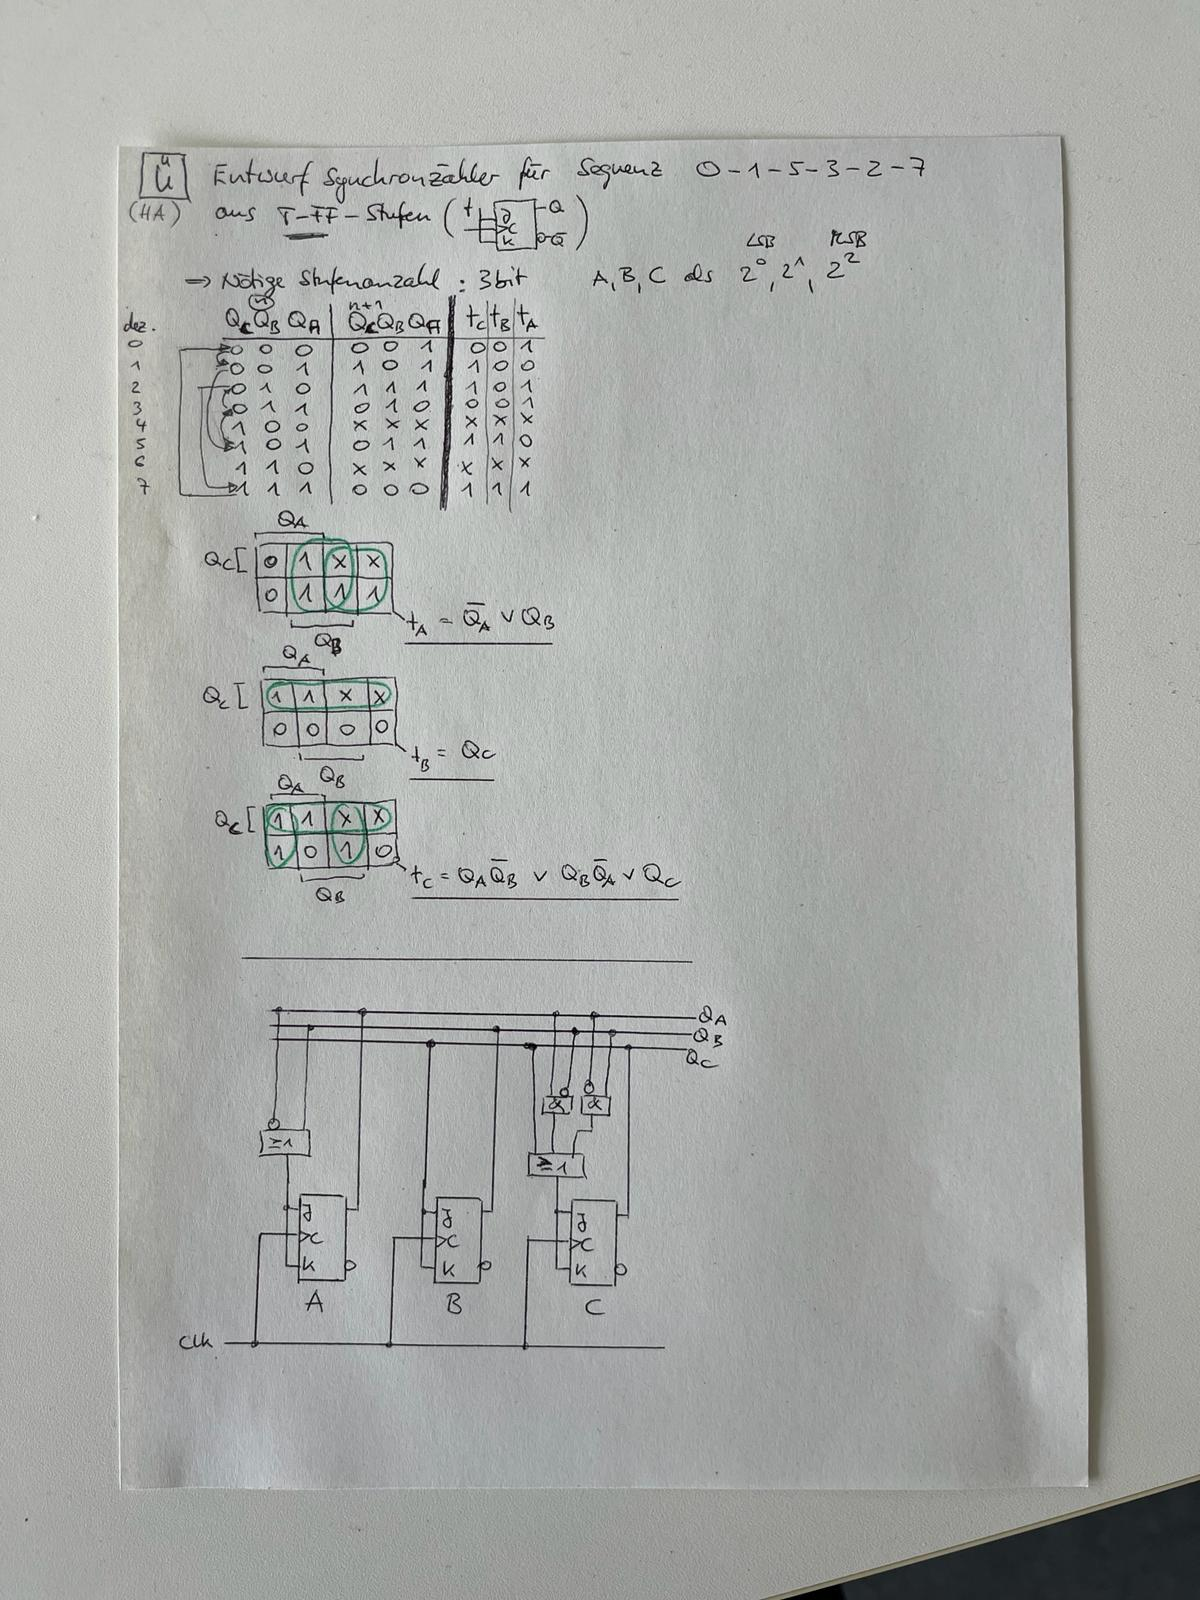 Ü Entwurf Synchronzähler für Sequenz 0-1-5-3-2-7
(HA) aus T-FF-Stufen ( t J C K Q Q̅ )
LSB MSB
⇒ Nötige Stufenanzahl : 3bit A, B, C als 2⁰, 2¹, 2²
n n+1
dez. QC QB QA QC QB QA tC tB tA
0 0 0 0 0 0 1 0 0 1
1 0 0 1 1 0 1 1 0 0
2 0 1 0 1 1 1 1 0 1
3 0 1 1 0 1 0 0 0 1
4 1 0 0 x x x x x x
5 1 0 1 0 1 1 1 1 0
6 1 1 0 x x x x x x
7 1 1 1 0 0 0 1 1 1
QA
QC [ 0 1 x x
0 1 1 1
tA = Q̅A ∨ QB
QB
QA
QC [ 1 1 x x
0 0 0 0
tB = QC
QB
QA
QC [ 1 1 x x
1 0 1 0
tC = QA Q̅B ∨ QB Q̅A ∨ QC
QB
QA
QB
QC
& &
≥1 ≥1
J J J
C C C
K K K
A B C
Clk